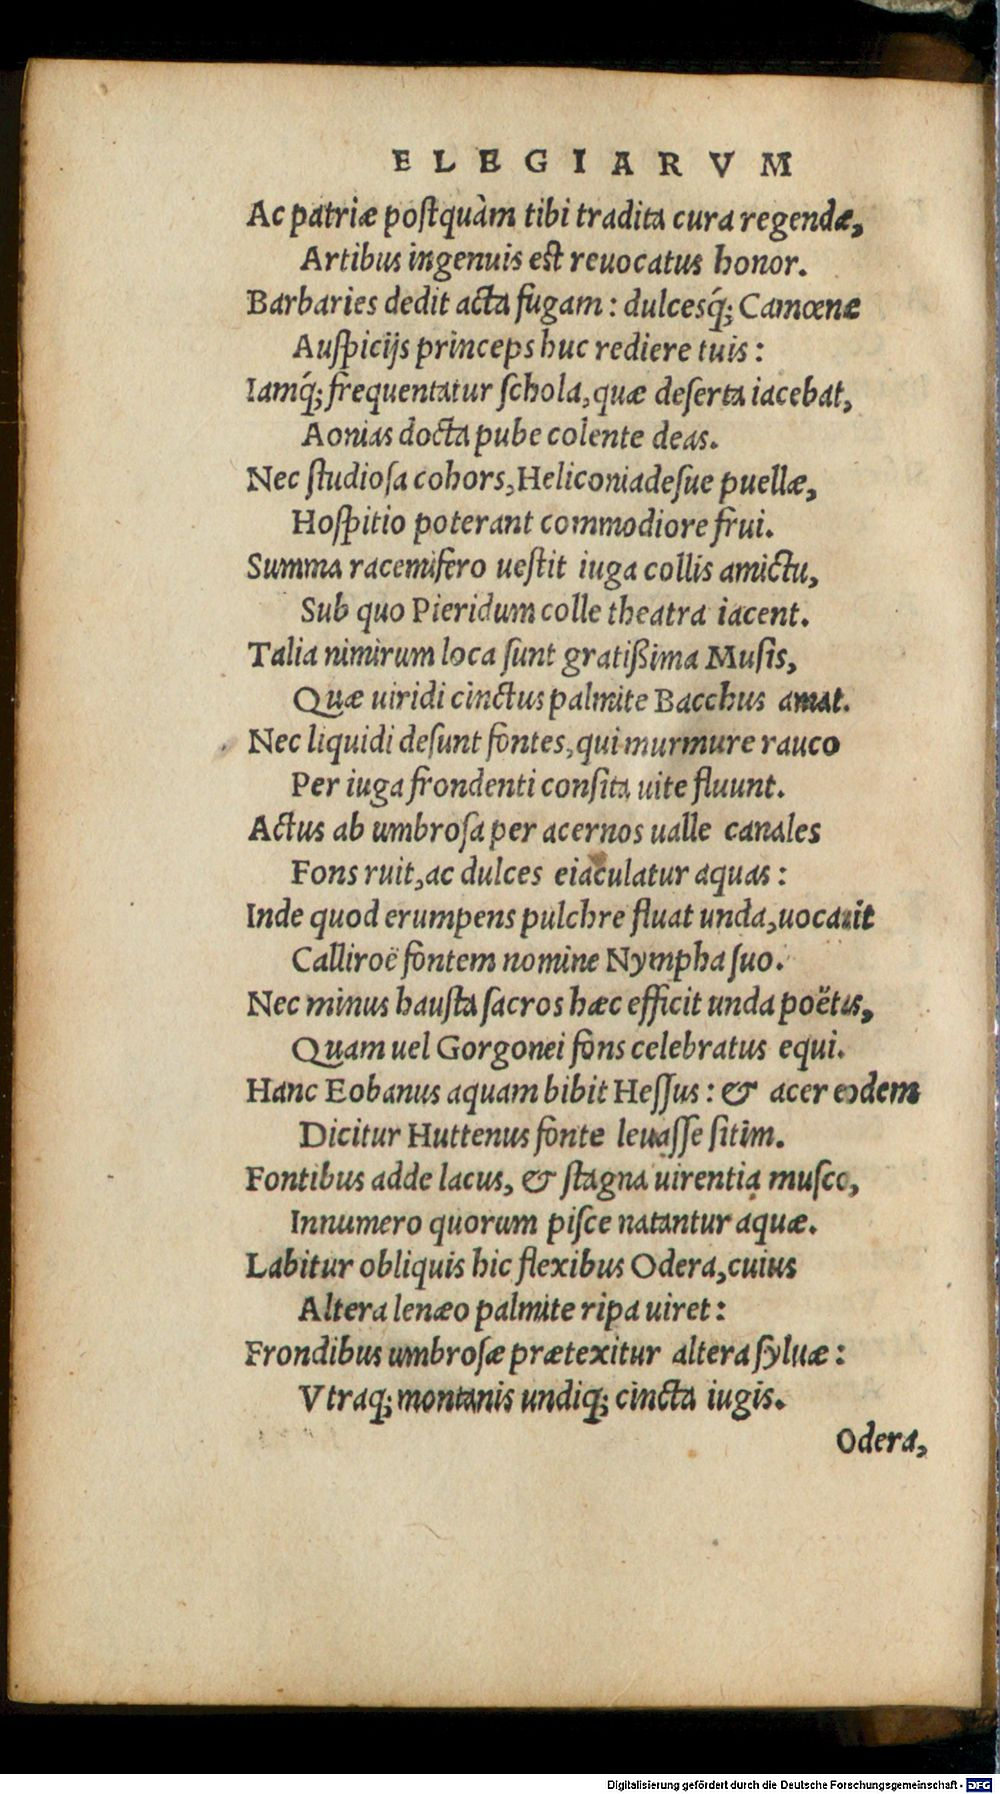 ELEGIARVM
Ac patriæ postquàm tibi tradita cura regendæ,
Artibus ingenuis est reuocatus honor.
Barbaries dedit acta fugam: dulcesq́; Camœnæ
Auspicijs princeps huc rediere tuis:
Iamq́; frequentatur schola, quæ deserta iacebat,
Aonias docta pube colente deas.
Nec studiosa cohors, Heliconiadesue puellæ,
Hospitio poterant commodiore frui.
Summa racemifero uestit iuga collis amictu,
Sub quo Pieridum colle theatra iacent.
Talia nimirum loca sunt gratißima Musis,
Quæ uiridi cinctus palmite Bacchus amat.
Nec liquidi desunt fontes, qui murmure rauco
Per iuga frondenti consita uite fluunt.
Actus ab umbrosa per acernos ualle canales
Fons ruit, ac dulces eiaculatur aquas:
Inde quod erumpens pulchre fluat unda, uocauit
Calliroë fontem nomine Nympha suo.
Nec minus hausta sacros hæc efficit unda poëtas,
Quam uel Gorgonei fons celebratus equi.
Hanc Eobanus aquam bibit Hessus: & acer eodem
Dicitur Huttenus fonte leuasse sitim.
Fontibus adde lacus, & stagna uirentia musco,
Innumero quorum pisce natantur aquæ.
Labitur obliquis hic flexibus Odera, cuius
Altera lenæo palmite ripa uiret:
Frondibus umbrosæ prætexitur altera syluæ:
Vtraq; montanis undiq; cincta iugis.
Odera,
Digitalisierung gefördert durch die Deutsche Forschungsgemeinschaft - DFG